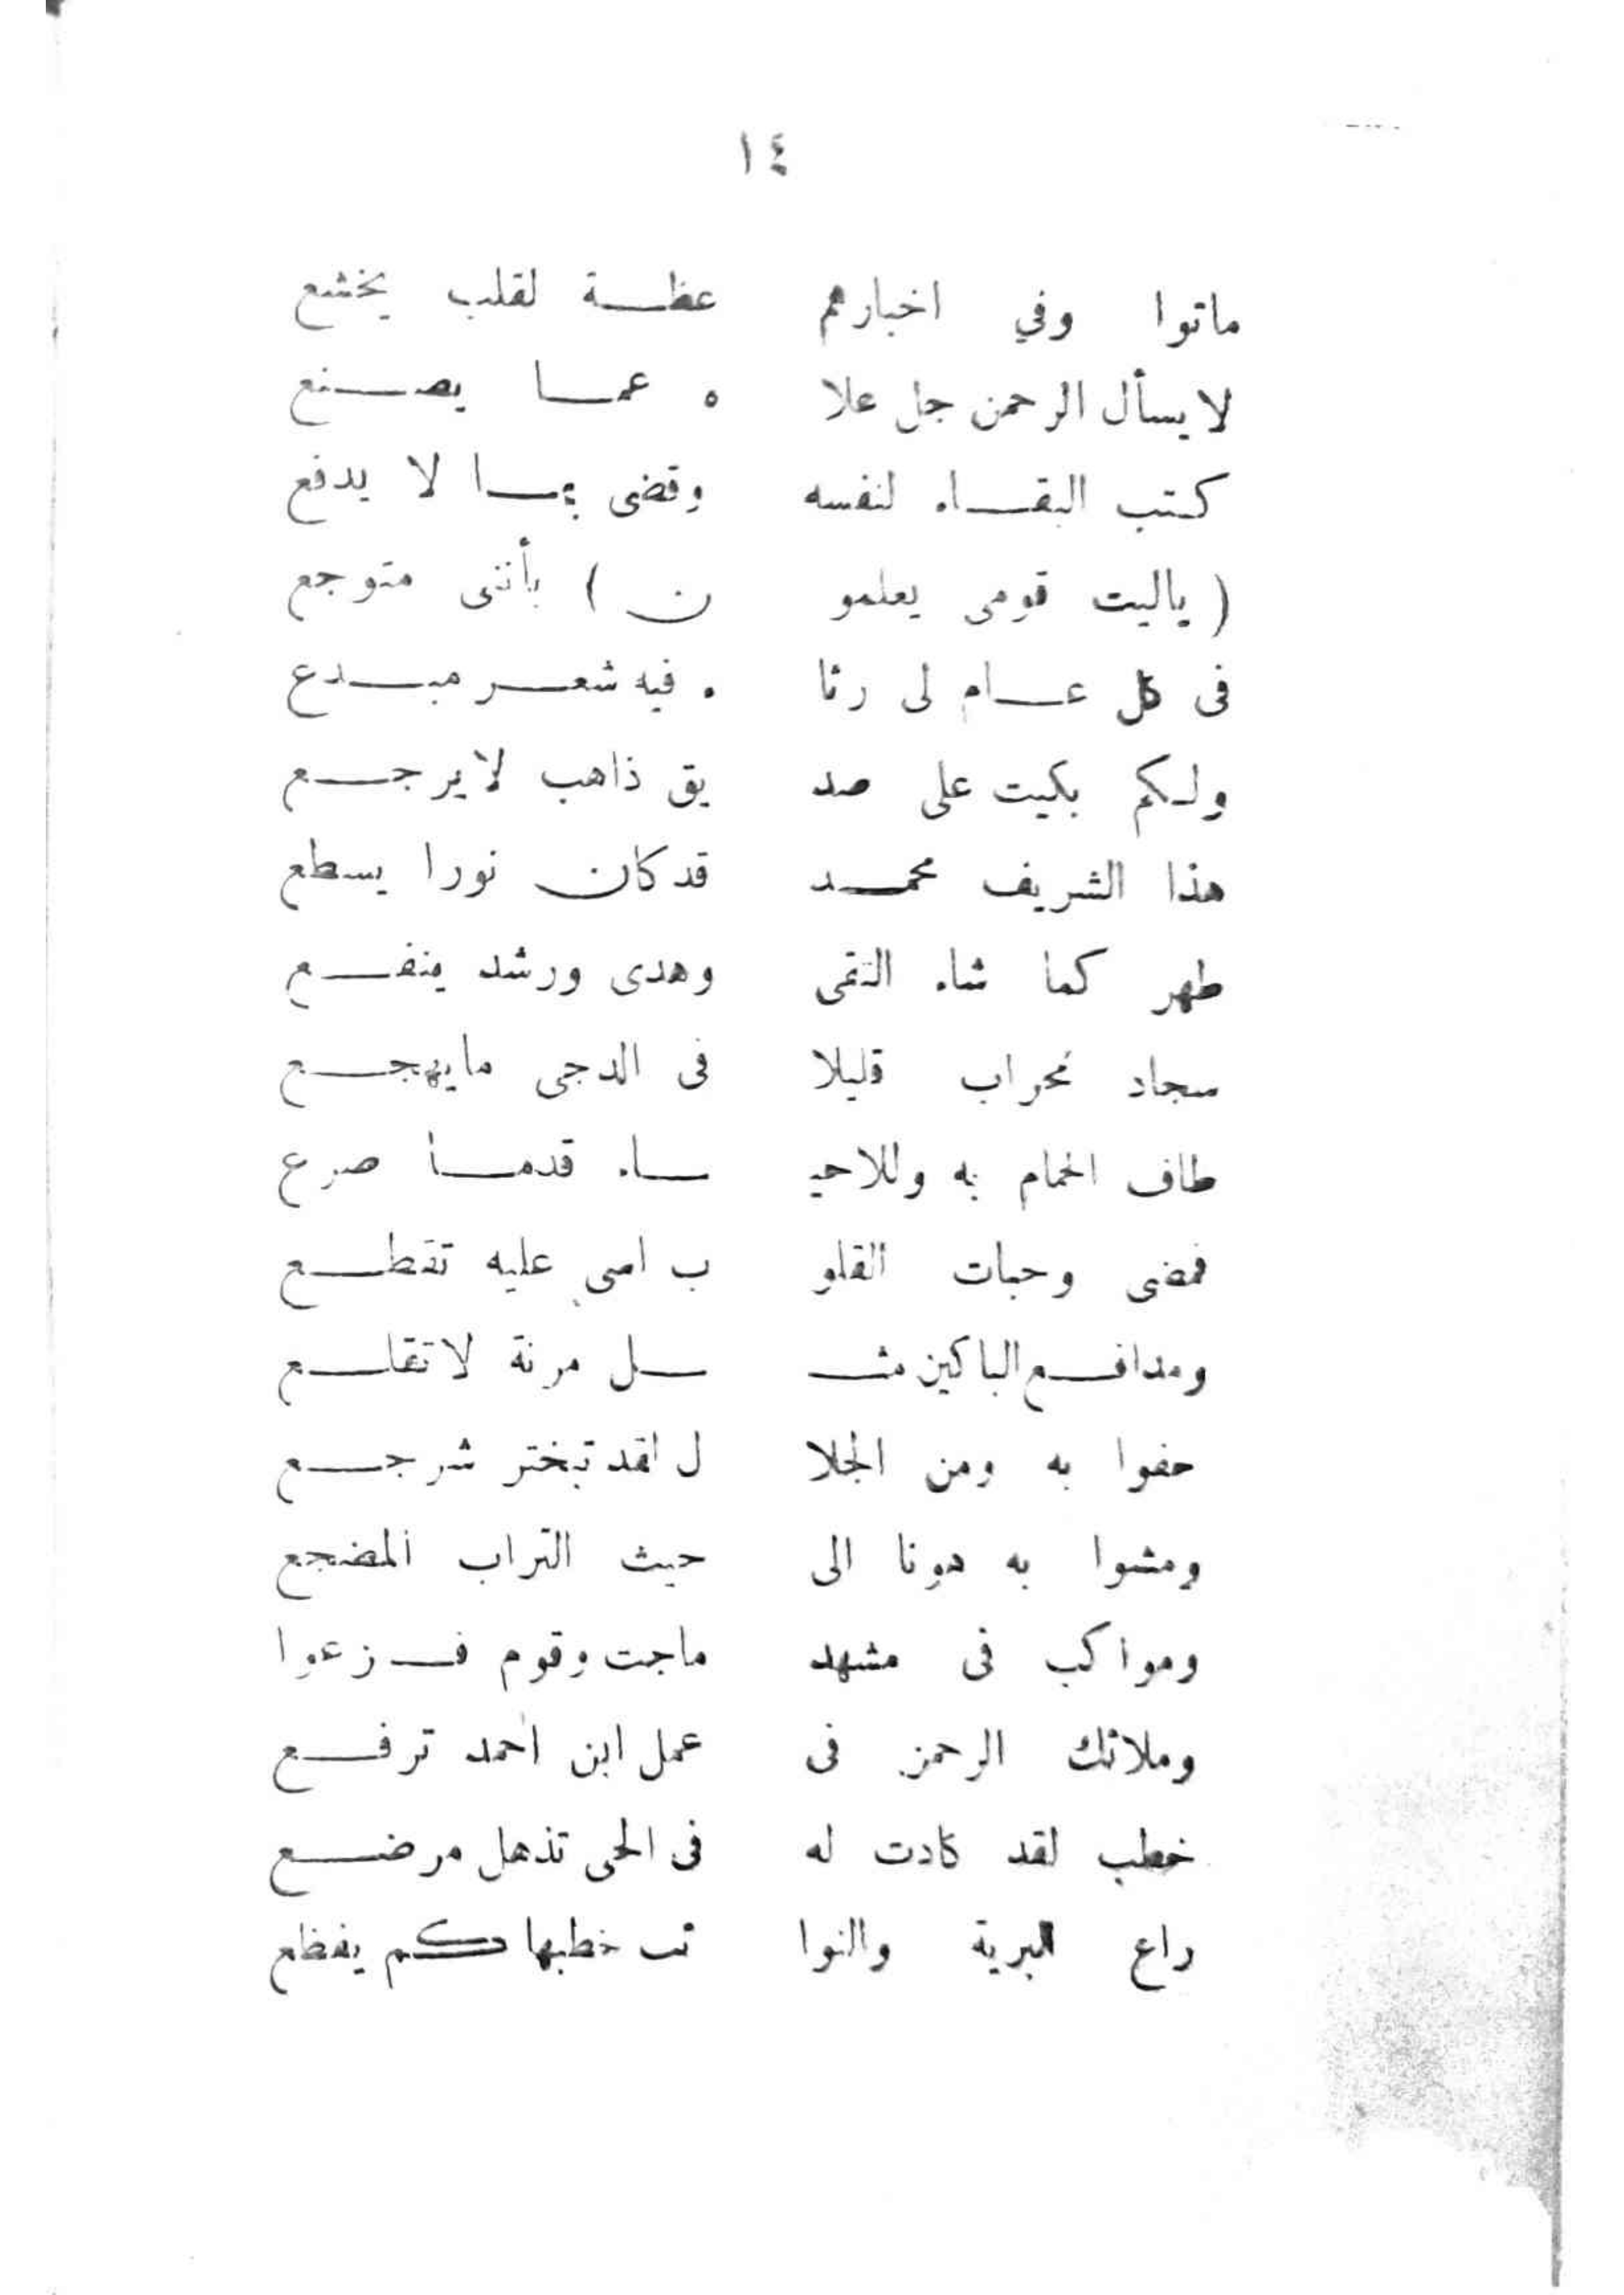 ١٤
ماتوا وفي اخبارهم عظة لقلب يخشع
لا يسأل الرحمن جل علا ه عما يصنع
كتب البقاء لنفسه وقضى بما لا يدفع
( ياليت قومى يعلمو ن ) بأننى متوجع
فى كل عام لى رثا ء فيه شعر مبدع
ولكم بكيت على صد يق ذاهب لايرجع
هذا الشريف محمد قد كان نورا يسطع
طهر كما شاء التقى وهدى ورشد ينفع
سجاد محراب قليلا فى الدجى مايهجع
طاف الحمام به وللاحيـ ـاء قدما صرع
فمضى وحبات القلو ب اسى عليه تقطع
ومدافع الباكين مثـ ـل مزنة لاتقلع
حفوا به ومن الجلا ل لقد تبختر شرجع
ومشوا به هونا الى حيث التراب المضجع
ومواكب فى مشهد ماجت وقوم فزعوا
وملائك الرحمن فى عمل ابن احمد ترفع
خطب لقد كادت له فى الحى تذهل مرضع
راع البرية والنوا ئب خطبها كم يفظع